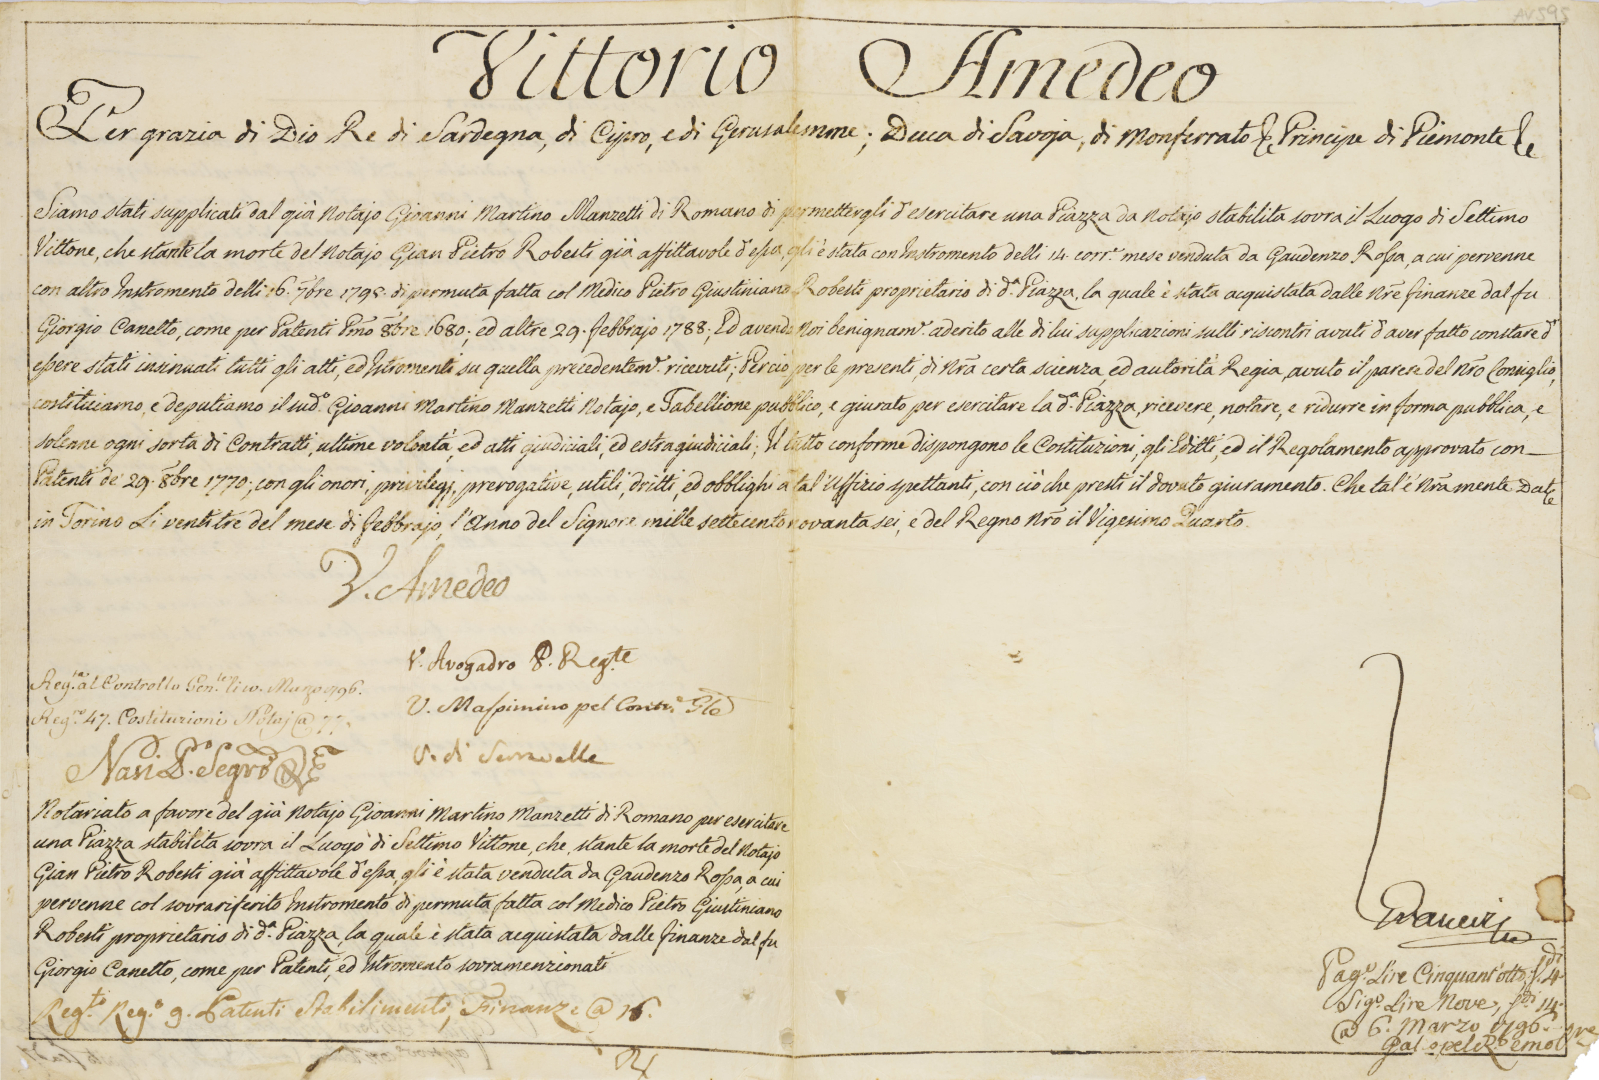 AV595
Vittorio Amedeo
Per grazia di Dio Re di Sardegna, di Cipro, e di Gerusalemme; Duca di Savoja, di Monferrato &c Principe di Piemonte &c
Siamo stati supplicati dal già Notajo Gioanni Martino Manzetti di Romano di permettergli d'esercitare una Piazza da Notajo stabilita sovra il Luogo di Settimo
Vittone, che stante la morte del Notajo Gian Pietro Robesti già affittavole d'essa, gli è stata con Instromento delli 14. corr.e mese venduta da Gaudenzo Rossa, a cui pervenne
con altro Instromento delli 16. 7bre 1795. di permuta fatta col Medico Pietro Giustiniano Robesti proprietario di d.a Piazza, la quale è stata acquistata dalle Nrē finanze dal fu
Giorgio Canetto, come per Patenti Pmō 8bre 1680; ed altre 29. febbrajo 1788; Ed avendo Noi benignam.e aderito alle di lui supplicazioni sulli riscontri avuti d'aver fatto constare d'
essere stati insinuati tutti gli atti, ed Istromenti su quella precedentem.e ricevuti; Perciò per le presenti, di Nrā certa scienza, ed autorità Regia, avuto il parere del Nrō Consiglio,
costituiamo, e deputiamo il sud.o Gioanni Martino Manzetti Notajo, e Tabellione pubblico, e giurato per esercitare la d.a Piazza, ricevere, notare, e ridurre in forma pubblica, e
solenne ogni sorta di Contratti, ultime volontà, ed atti giudiciali, ed estragiudiciali; Il tutto conforme dispongono le Costituzioni, gli Editti, ed il Regolamento approvato con
Patenti de' 29. 8bre 1770; con gli onori, privilegj, prerogative, utili, dritti, ed obblighi a tal' Uffizio spettanti, con ciò che presti il dovuto giuramento. Che tal' è Nrā mente Date
in Torino Li ventitre del mese di febbrajo, l'Anno del Signore mille settecento novanta sei, e del Regno Nrō il Vigesimo Quarto.
V. Amedeo
V. Avogadro P. Reg.te
V. Massimino pel Contr.e Gle
V. di Serravalle
Reg.ta al Controllo Gen.le li 10. Marzo 1796.
Reg.ro 47. Costituzioni Notaj @ 77.
Nasi P.o Segro
Notariato a favore del già Notajo Gioanni Martino Manzetti di Romano per esercitare
una Piazza stabilita sovra il Luogo di Settimo Vittone, che, stante la morte del Notajo
Gian Pietro Robesti già affittavole d'essa, gli è stata venduta da Gaudenzo Rossa, a cui
pervenne col sovrariferito Instromento di permuta fatta col Medico Pietro Giustiniano
Robesti proprietario di d.a Piazza, la quale è stata acquistata dalle finanze dal fu
Giorgio Canetto, come per Patenti, ed Istromento sovramenzionati
Reg.to Reg.o 9. Patenti Stabilimenti, Finanze @ 16.
Pag.o Lire Cinquant'otto, s.di 4.
Sig.o Lire Nove, s.di 14.
@ 6. Marzo 1796.